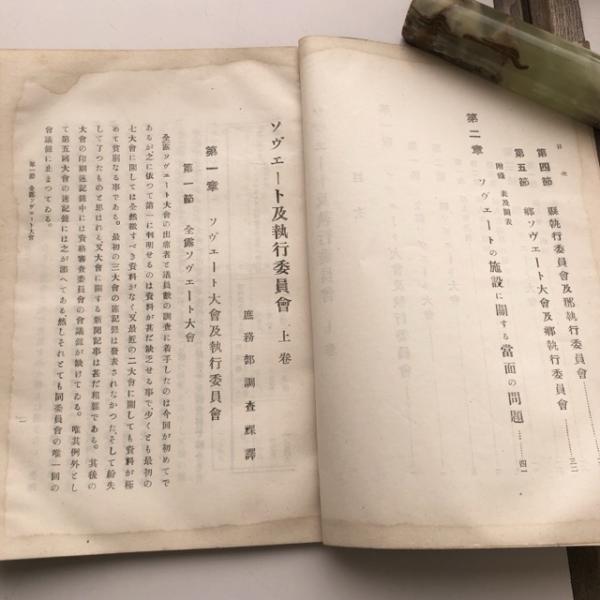 目次
第四節 縣執行委員會及郡執行委員會…………三二
第五節 鄕ソヴェート大會及鄕執行委員會…………
附錄 表及圖表
第二章 ソヴェートの施設に關する當面の問題……四一
ソヴェート及執行委員會 上卷
庶務部調査課譯
第一章 ソヴェート大會及執行委員會
第一節 全露ソヴェート大會
全露ソヴェート大會の出席者と議員數の調査に着手したのは今回が初めてで
あるが、之に依つて第一に判明せるのは資料が甚だ缺乏せる事で少くとも最初の
七大會に關しては全然徵すべき資料がなく、又最近の二大會に關しても資料が極
めて貧弱なる事である。最初の三大會の速記錄は發表されなかつた、そして紛失
して了つたものと思はれる又大會に關する新聞記事は甚だ粗雜である。其後の
大會の印刷速記錄中には資格審査委員會の會議錄が缺けてゐる。唯其例外とし
て第五回大會の速記錄には之が添へてある然しそれとても同委員會の唯一回の
會議錄に止まつてゐる。
第一節 全露ソヴェート大會
一